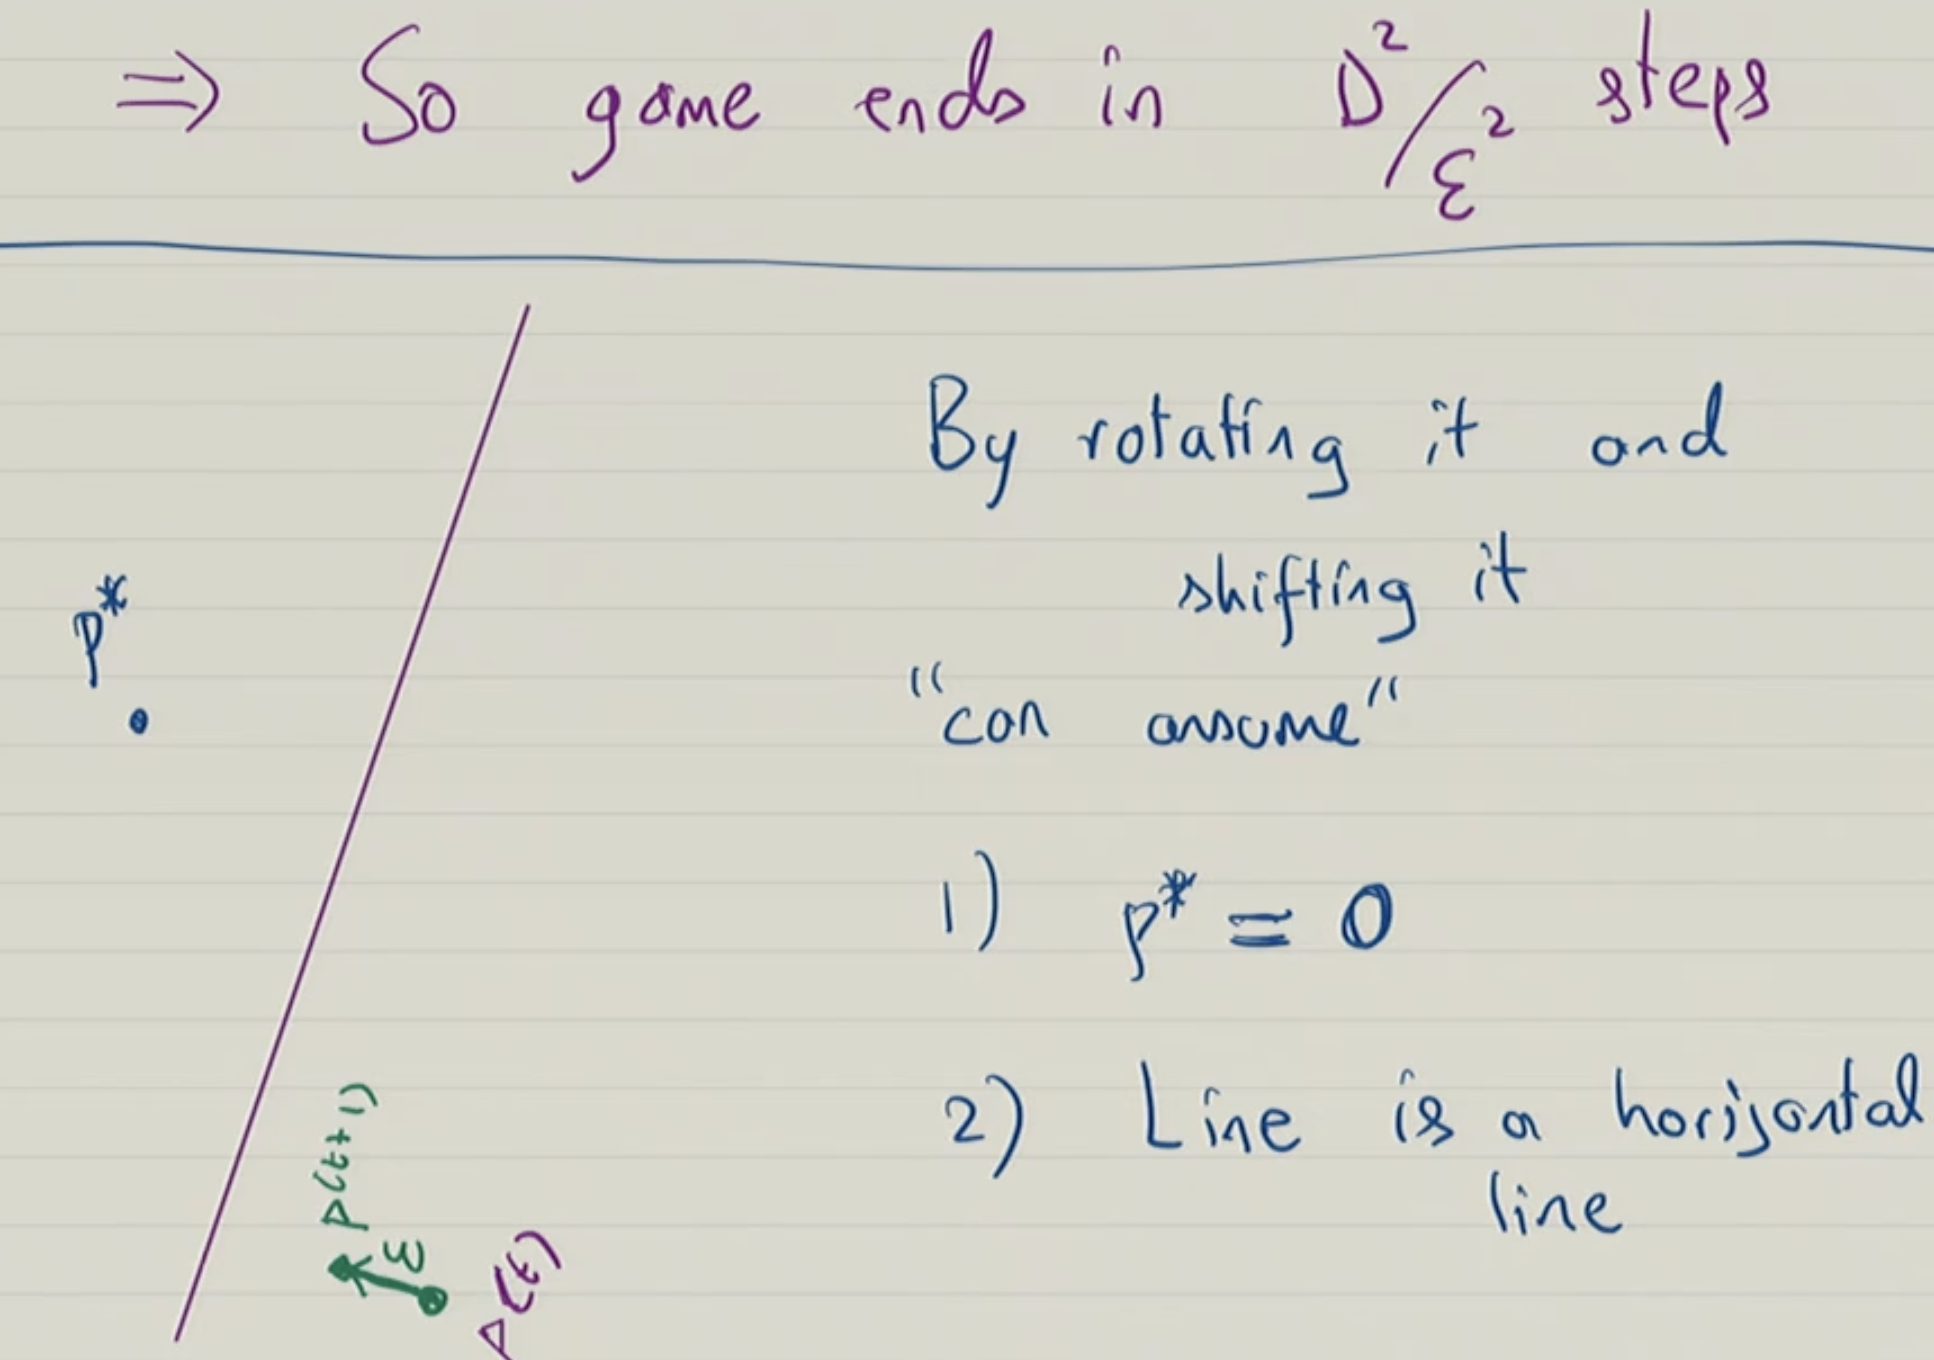 ⇒ So game ends in D²/ε² steps
By rotating it and
shifting it
"can assume"
p*
1) p* = 0
2) Line is a horizontal
line
p(t+1)
ε
p(t)